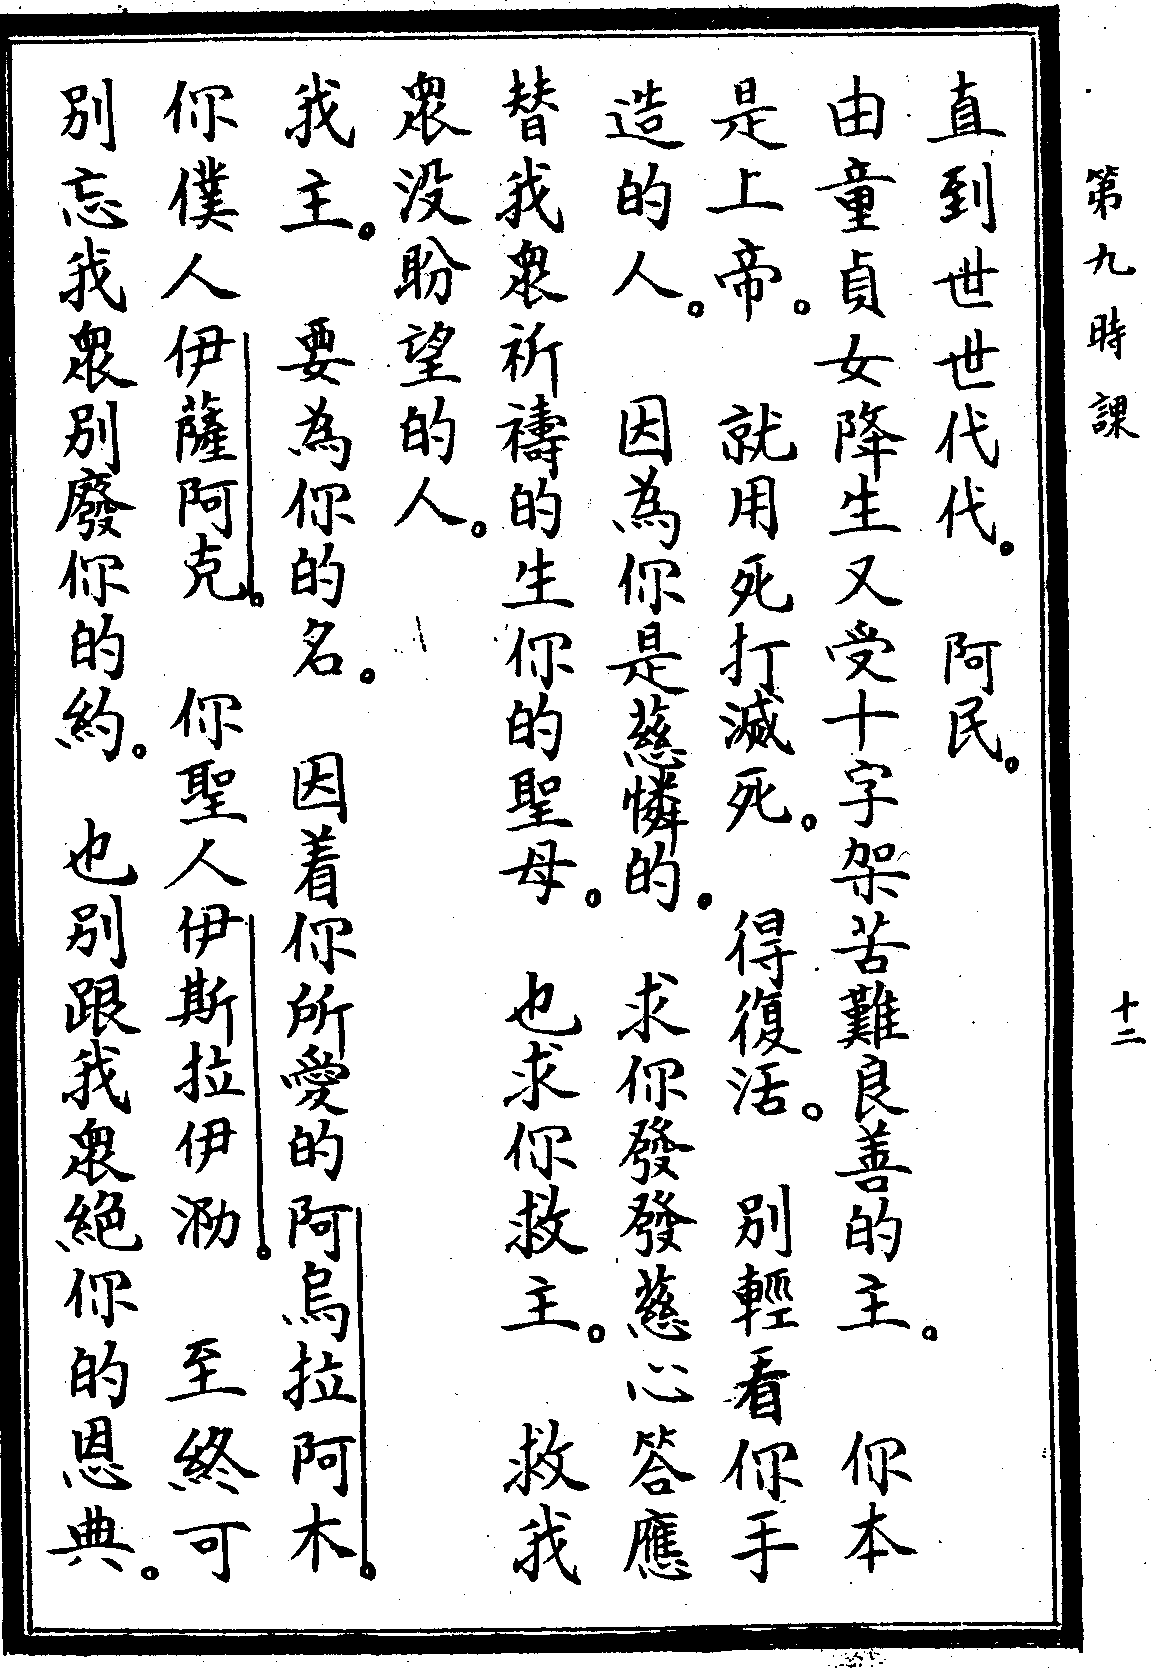 第九時課
十二
直到世世代代。 阿民。
由童貞女降生又受十字架苦難良善的主。 你本
是上帝。 就用死打滅死。 得復活。 別輕看你手
造的人。 因為你是慈憐的。 求你發發慈心答應
替我衆祈禱的生你的聖母。 也求你救主。 救我
衆没盼望的人。
我主。 要為你的名。 因着你所愛的阿烏拉阿木。
你僕人伊薩阿克。 你聖人伊斯拉伊泐。 至終可
別忘我衆別廢你的約。 也別跟我衆絕你的恩典。